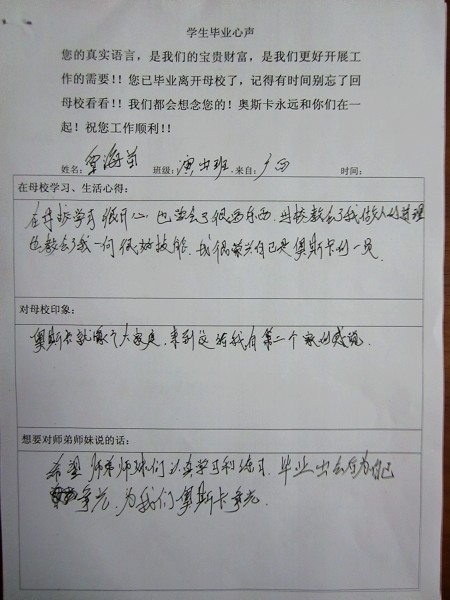 学生毕业心声
您的真实语言，是我们的宝贵财富，是我们更好开展工
作的需要！！您已毕业离开母校了，记得有时间别忘了回
母校看看！！我们都会想念您的！奥斯卡永远和你们在一
起！祝您工作顺利！！
姓名： 班级：演出班 来自：广西 时间：
在母校学习、生活心得：
在 学习很开心，也学会了很多东西，母校教会了我做人的道理
也教会了我一门很好技能，我很荣兴自己是奥斯卡的一员
对母校印象：
奥斯卡就像个大家庭，来到这 我有第二个家的感觉．
想要对师弟师妹说的话：
希望师弟师妹们认真学习和练习，毕业出去后为自己
争光，为我们奥斯卡争光．